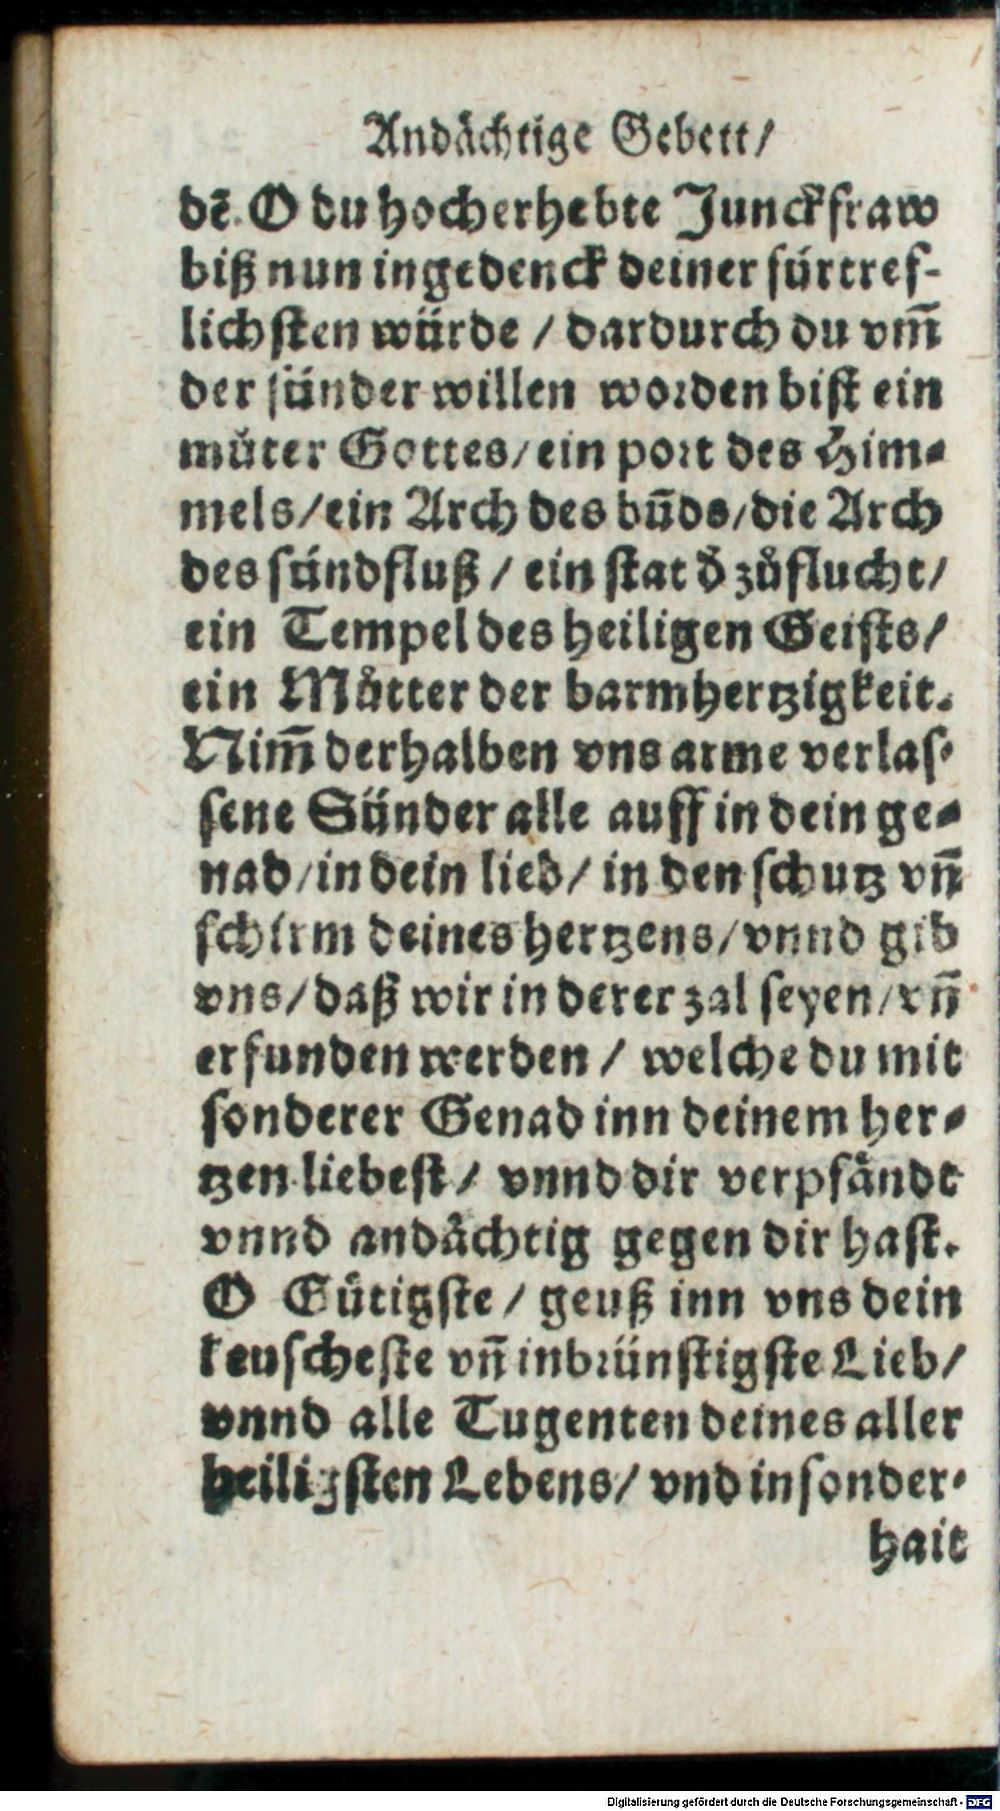 Andåchtige Gebett/
dē. O du hocherhebte Junckfraw
biß nun ingedenck deiner fürtref-
lichsten würde / dardurch du vm̄
der sünder willen worden bist ein
můter Gottes/ ein port des Him-
mels/ein Arch des būds/die Arch
des sündfluß / ein stat d̄ zůflucht/
ein Tempel des heiligen Geists/
ein Můtter der barmhertzigkeit.
Nim̄ derhalben vns arme verlas-
sene Sünder alle auff in dein ge-
nad/in dein lieb/ in den schutz vn̄
schirm deines hertzens/vnnd gib
vns/daß wir in derer zal seyen/vn̄
erfunden werden / welche du mit
sonderer Genad inn deinem her-
tzen liebest/ vnnd dir verpfåndt
vnnd andåchtig gegen dir hast.
O Gütigste / geuß inn vns dein
keuscheste vn̄ inbrünstigste Lieb/
vnnd alle Tugenten deines aller
heiligsten Lebens/ vnd in sonder-
hait
Digitalisierung gefördert durch die Deutsche Forschungsgemeinschaft - DFG